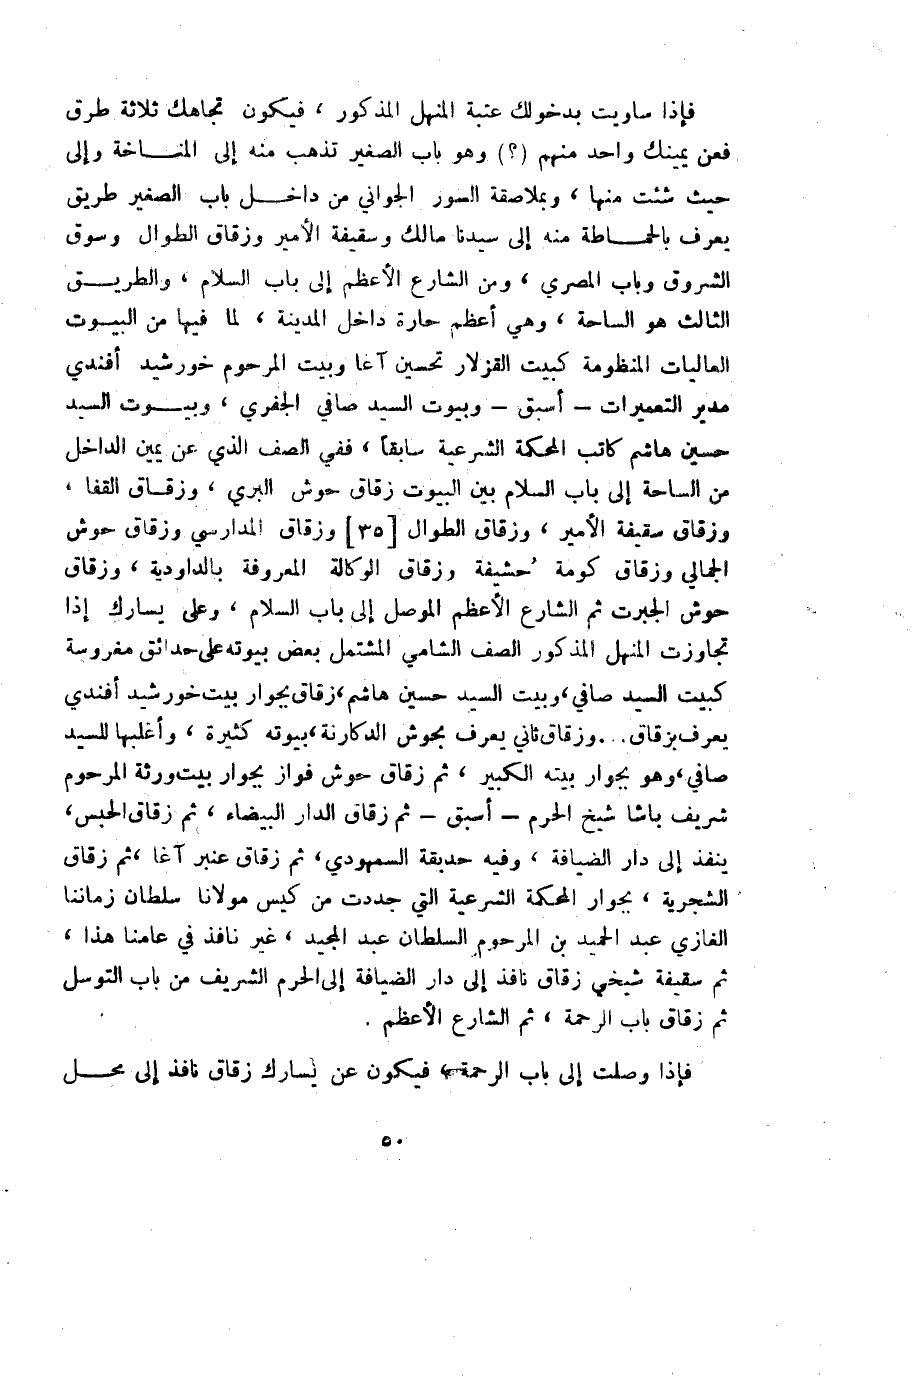 فإذا ساريت بدخولك عتبة المنهل المذكور ، فيكون تجاهك ثلاثة طرق
فعن يمينك واحد منهم (؟) وهو باب الصغير تذهب منه إلى المناخة وإلى
حيث شئت منها ، وبملاصقة السور الجواني من داخل باب الصغير طريق
يعرف بالحماطة منه إلى سيدنا مالك وسقيفة الأمير وزقاق الطوال وسوق
الشروق وباب المصري ، ومن الشارع الأعظم إلى باب السلام ، والطريق
الثالث هو الساحة ، وهي أعظم حارة داخل المدينة ، لما فيها من البيوت
العاليات المنظومة كبيت القزلار تحسين آغا وبيت المرحوم خورشيد أفندي
مدير التعميرات – أسبق – وبيوت السيد صافي الجفري ، وبيوت السيد
حسين هاشم كاتب المحكمة الشرعية سابقاً ، ففي الصف الذي عن يمين الداخل
من الساحة إلى باب السلام بين البيوت زقاق حوش البري ، وزقاق القفا ،
وزقاق سقيفة الأمير ، وزقاق الطوال [٣٥] وزقاق المدارسي وزقاق حوش
الجمالي وزقاق كومة حُشيفة وزقاق الوكالة المعروفة بالداودية ، وزقاق
حوش الجبرت ثم الشارع الأعظم الموصل إلى باب السلام ، وعلى يسارك إذا
تجاوزت المنهل المذكور الصف الشامي المشتمل بعض بيوته على حدائق مغروسة
كبيت السيد صافي ، وبيت السيد حسين هاشم ، زقاق بجوار بيت خورشيد أفندي
يعرف بزقاق... وزقاق ثاني يعرف بحوش الدكارنة ، بيوته كثيرة ، وأغلبها للسيد
صافي ، وهو بجوار بيته الكبير ، ثم زقاق حوش فواز بجوار بيت ورثة المرحوم
شريف باشا شيخ الحرم – أسبق – ثم زقاق الدار البيضاء ، ثم زقاق الحبس ،
ينفذ إلى دار الضيافة ، وفيه حديقة السمهودي ، ثم زقاق عنبر آغا ، ثم زقاق
الشجرية ، بجوار المحكمة الشرعية التي جددت من كيس مولانا سلطان زماننا
الغازي عبد الحميد بن المرحوم السلطان عبد المجيد ، غير نافذ في عامنا هذا ،
ثم سقيفة شيخي زقاق نافذ إلى دار الضيافة إلى الحرم الشريف من باب التوسل
ثم زقاق باب الرحمة ، ثم الشارع الأعظم .
فإذا وصلت إلى باب الرحمة ، فيكون عن يسارك زقاق نافذ إلى محل
٥٠